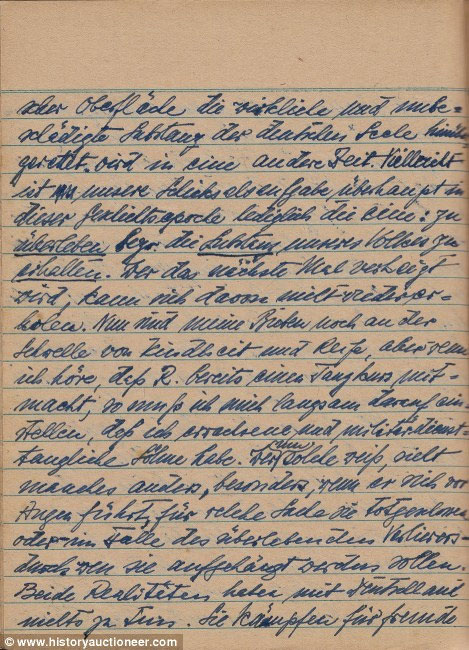 aber Oberfläche die wirkliche und unbe-
schädigte Substanz der deutschen Seele
gerettet wird in eine andere Zeit. Vielleicht
ist unsere Schicksalsaufgabe überhaupt in
dieser die eine: zu
überleben bezw. die Substanz unseres Volkes zu
erhalten. Wer das nächste Mal verheizt
wird, kann sich davon nicht wieder er-
holen. Nun sind meine Buben noch an der
Schwelle von Kindheit und Reife, aber wenn
ich höre, daß R. bereits einen Tanzkurs mit-
macht, so muß ich mich langsam darauf ein-
stellen, daß ich erwachsene und militärdienst-
taugliche Söhne habe. nun solche sieht
manches anders, besonders, wenn er sich vor
Augen führt, für welche Sache sie
oder im Falle des überlebenden
durch wen sie aufgehängt werden sollen.
Beide Realitäten haben mit Deutschland
nichts zu tun. Sie kämpfen für fremde
© www.historyauctioneer.com